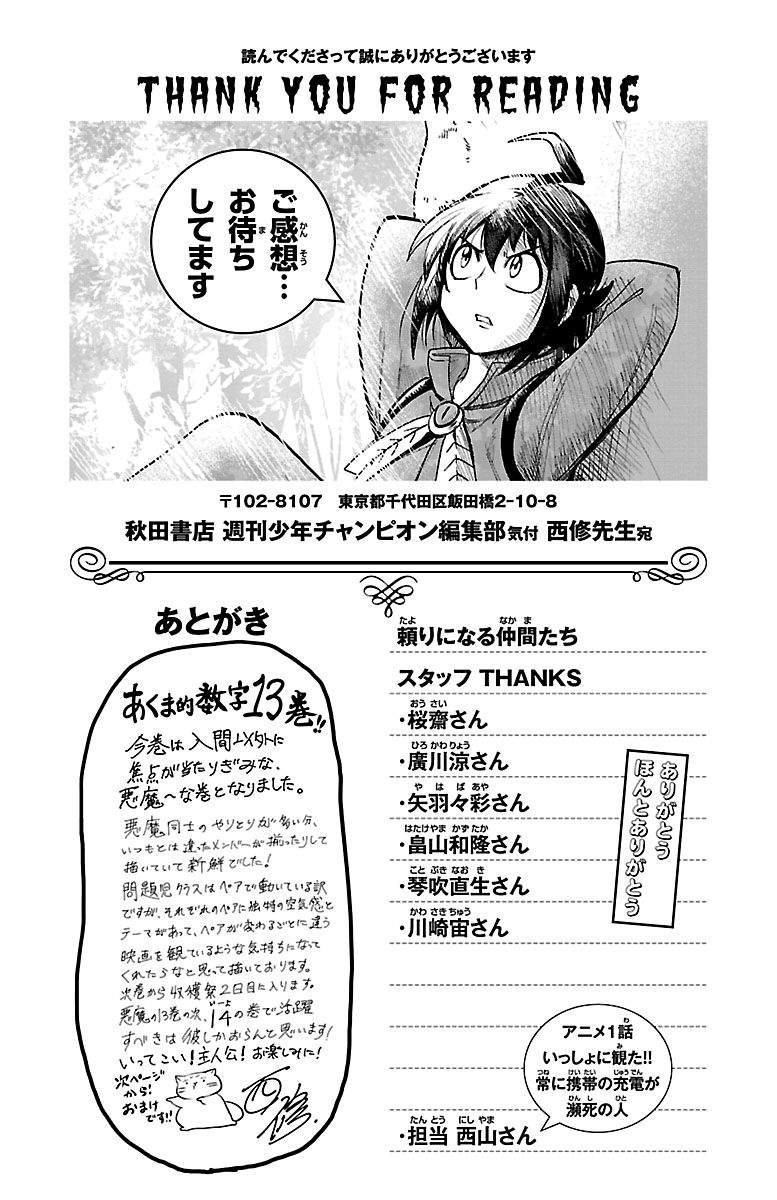 読んでくださって誠にありがとうございます
THANK YOU FOR READING
ご感想…
お待ち
してます
〒102-8107　東京都千代田区飯田橋2-10-8
秋田書店 週刊少年チャンピオン編集部気付 西修先生宛
あとがき
あくま的数字13巻!!
今巻は入間以外に
焦点が当たりぎみな、
悪魔〜な巻となりました。
悪魔同士のやりとりが多い分、
いつもとは違ったメンバーが揃ったりして
描いていて新鮮でした!
問題児クラスはペアで動いている訳
ですが、それぞれのペアに独特の空気感と
テーマがあって、ペアが変わるごとに違う
映画を観ているような気持ちになって
くれたらなと思って描いております。
次巻から収穫祭2日目に入ります。
悪魔の13巻の次、14の巻で活躍
すべきは彼しかおらんと思います!
いってこい!主人公! お楽しみに!
次ページ
から!
おまけ
です!!
西修
頼りになる仲間たち
スタッフ THANKS
・桜齋さん
・廣川涼さん
・矢羽々彩さん
・畠山和隆さん
・琴吹直生さん
・川崎宙さん
ありがとう
ほんとありがとう
アニメ1話
いっしょに観た!!
常に携帯の充電が
瀕死の人
・担当 西山さん